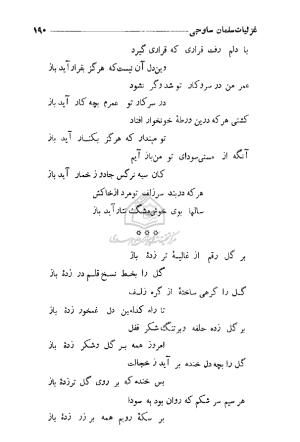 غزلیات سلمان ساوجی ۱۹۰
با دلم رفت قراری که قراری گیرد
وین دل آن نیست که هرگز بقرار آید باز
عمر من در سر و کار تو شد و گر نشود
در سر کار تو عمرم بچه کار آید باز
کشتی هر که درین ورطهٔ خونخوار افتاد
تو مپندار که هرگز بکنار آید باز
آنگه از مستی سودای تو من باز آیم
کان سیه نرگس جادو ز خمار آید باز
هر که در بند سر زلف تو مرد از خاکش
سالها بوی خوش مشگ تتار آید باز
***
بر گل رقم از غالیهٔ تر زدهٔ باز
گل را بخط نسخ قلم در زدهٔ باز
گل را گرهی ساختهٔ از گره زلف
تا راه کدامین دل غمخور زدهٔ باز
بر گل زده حلقه و بر تنگ شکر قفل
امروز همه بر گل و شکر زدهٔ باز
گل را بچه دل خنده بر آید ز خجالت
بس خنده که بر روی گل تر زدهٔ باز
هر سیم سر شکم که روان بود به سودا
بر سکهٔ رویم همه بر زر زدهٔ باز